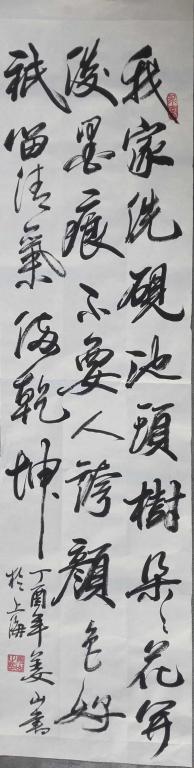 我家洗硯池頭樹朵〻花開
澹墨痕不要人誇顏色好
祇留清氣滿乾坤
丁酉年姜山書
於上海